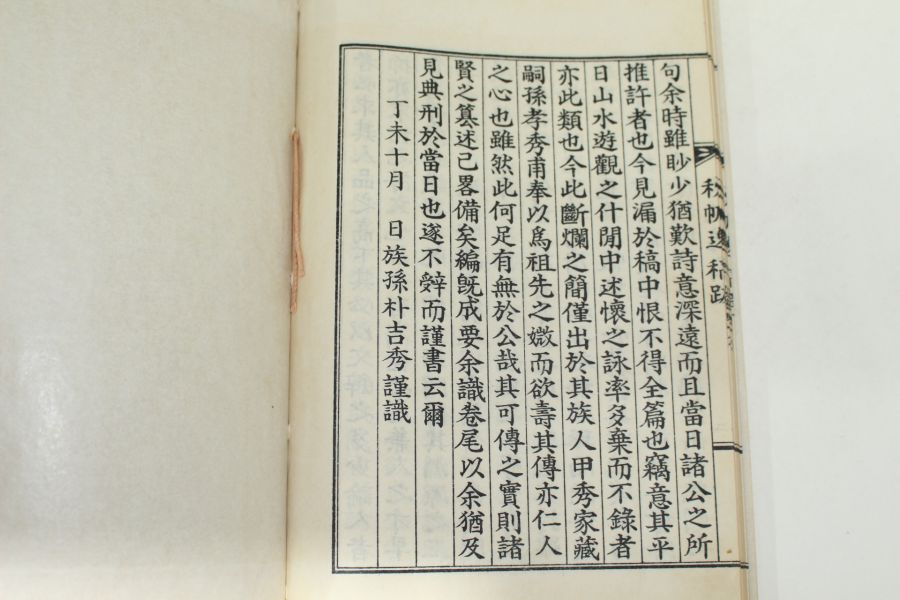 句余時雖眇少猶歎詩意深遠而且當日諸公之所
推許者也今見漏於稿中恨不得全篇也竊意其平
日山水遊觀之什閒中述懷之詠率多棄而不錄者
亦此類也今此斷爛之簡僅出於其族人甲秀家藏
嗣孫孝秀甫奉以爲祖先之媺而欲壽其傳亦仁人
之心也雖然此何足有無於公哉其可傳之實則諸
賢之篹述已畧備矣編旣成要余識卷尾以余猶及
見典刑於當日也遂不辤而謹書云爾
丁未十月　日族孫朴吉秀謹識